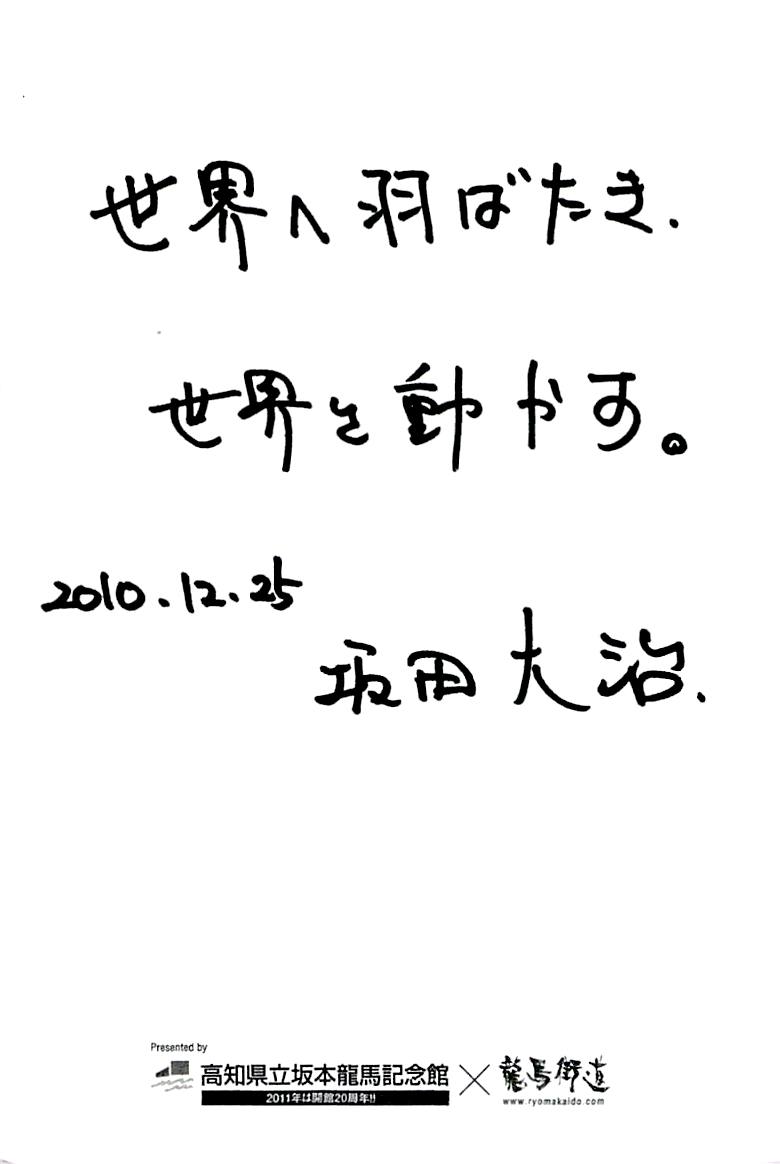 世界へ羽ばたき、
世界を動かす。
2010.12.25
坂田大治.
Presented by
高知県立坂本龍馬記念館
2011年は開館20周年!!
×
龍馬街道
www.ryomakaido.com